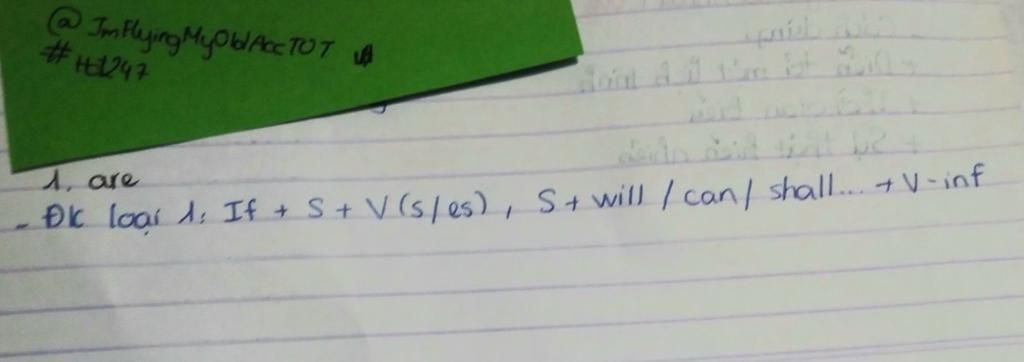 @ImFlyingMyOldAccTOT
#Hd1247
1. are
- ĐK loại 1: If + S + V(s/es), S + will / can / shall... + V-inf